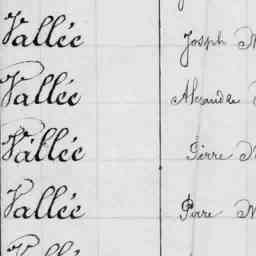 Vallée Joseph
Vallée Alexandre
Vallée Pierre
Vallée Pierre